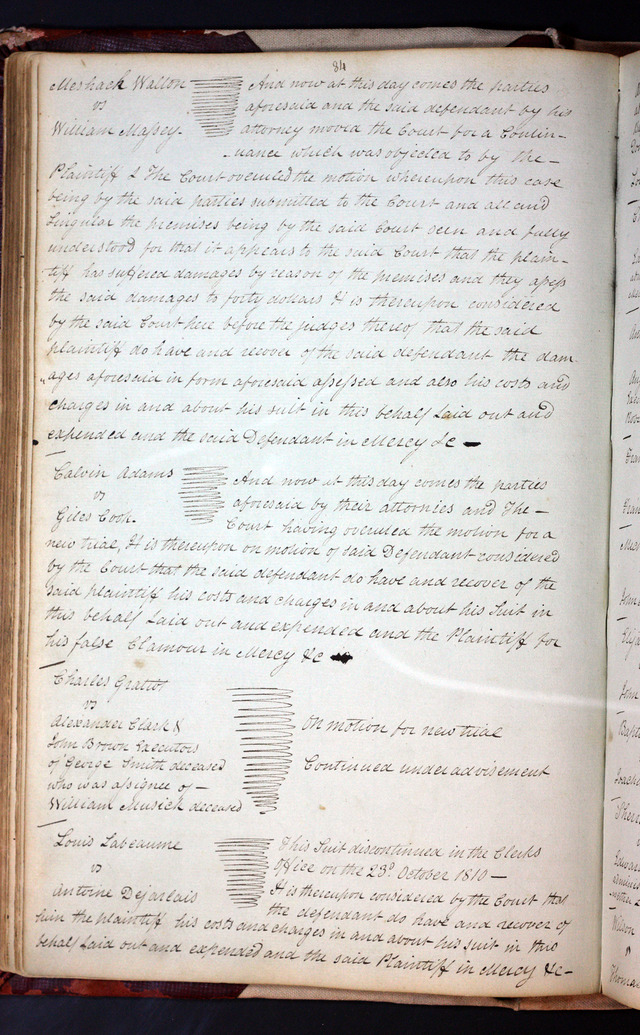 84
Meshack Walton
vs
William Massey.
And now at this day comes the parties
aforesaid and the said defendant by his
attorney moved the Court for a Contin-
-uance which was objected to by the-
Plaintiff & The Court overuled the motion whereupon this case
being by the said parties submitted to the Court and all and
Singular the premises being by the said Court seen and fully
understood for that it appears to the said Court that the plain-
-tiff has suffered damages by reason of the premises and they assess
the said damages to forty dollars It is thereupon considered
by the said Court here before the judges thereof that the said
plaintiff do have and recover of the said defendant the dam-
-ages aforesaid in form aforesaid assessed and also his costs and
charges in and about his suit in this behalf Laid out and
expended and the said Defendant in Mercy &c —
Calvin Adams
vs
Giles Cook.
And now at this day comes the parties
aforesaid by their attornies and The-
Court having overuled the motion for a
new trial, It is thereupon on motion of said Defendant considered
by the Court that the said defendant do have and recover of the
said plaintiff his costs and charges in and about his Suit in
this behalf Laid out and expended and the Plaintiff for
his false Clamour in Mercy &c
Charles Gratiot
vs
Alexander Clark &
John Brown Executors
of George Smith deceased
who is as assignee of-
William Musick deceased
On motion for new trial
Continued under advisement
Louis Labeaume
vs
Antoine Dejarlais
This Suit discontinued in the Clerks
Office on the 23d. October 1810-
It is thereupon considered by the Court that
the defendant do have and recover of
him the plaintiff his costs and charges in and about his Suit in this
behalf Laid out and expended and the said Plaintiff in Mercy &c-
Wilson
Thomas